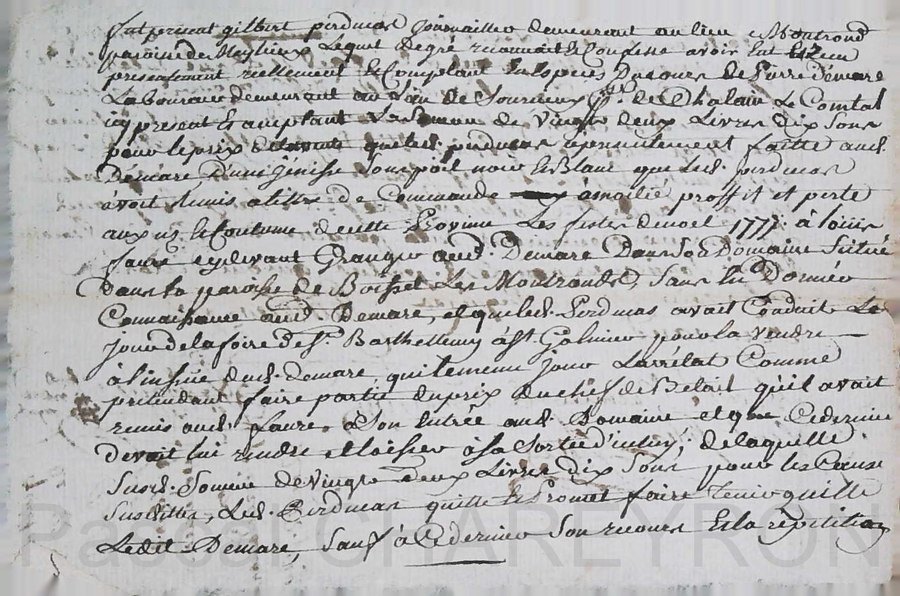 fut présent gilbert pirdmas Journaillier demeurant au lieu Montrond
paroisse de Meylieux Lequel de gré reconnoit & Confesse avoir Eut
presentement reellement & Comptant En Espèces Du cours de Pierre Demare
Laboureur demeurant au Lieu de Sourcieux psse de Chalain Le Comtal
icy present & acceptant La Somme de vingt deux Livres dix Sous
pour le prix que led. pirdmas  faitte aud.
Demare D'une Génisse Sous poil noir & Blanc que Led. pirdmas
avoit Remis a titre de Commande à moitié proffit et perte
aux us & Coutume de cette Province Les fêtes de noel 1777 à
faure cy devant Granger aud. Demare Dans Son Domaine Situé
Dans la paroisse de Boisset Les Montrond, Sans En Donner
Connaissance aud. Demare, et que led. Pirdmas avait Conduit Le
Jour de la foire de St. Barthellemy à St. Galmier pour la vendre
à l'insçue dud. Demare qui le meme jour L'arrétat Comme
prétendant faire partie du prix du chef de Betail qu'il avait
remis aud. faure à Son Entrée aud. Domaine et que Ce dernier
Devoit lui rendre et Laisser à Sa Sortie d'icelui; de laquelle
Susd. Somme de vingt deux Livres Dix Sous pour les Causes
Susdittes, Led. Pirdmas quitte & Promet faire Tenir quitte
Ledit Demare, Sauf à Ce dernier Son recours & la répétition
Pascal CHAREYRON